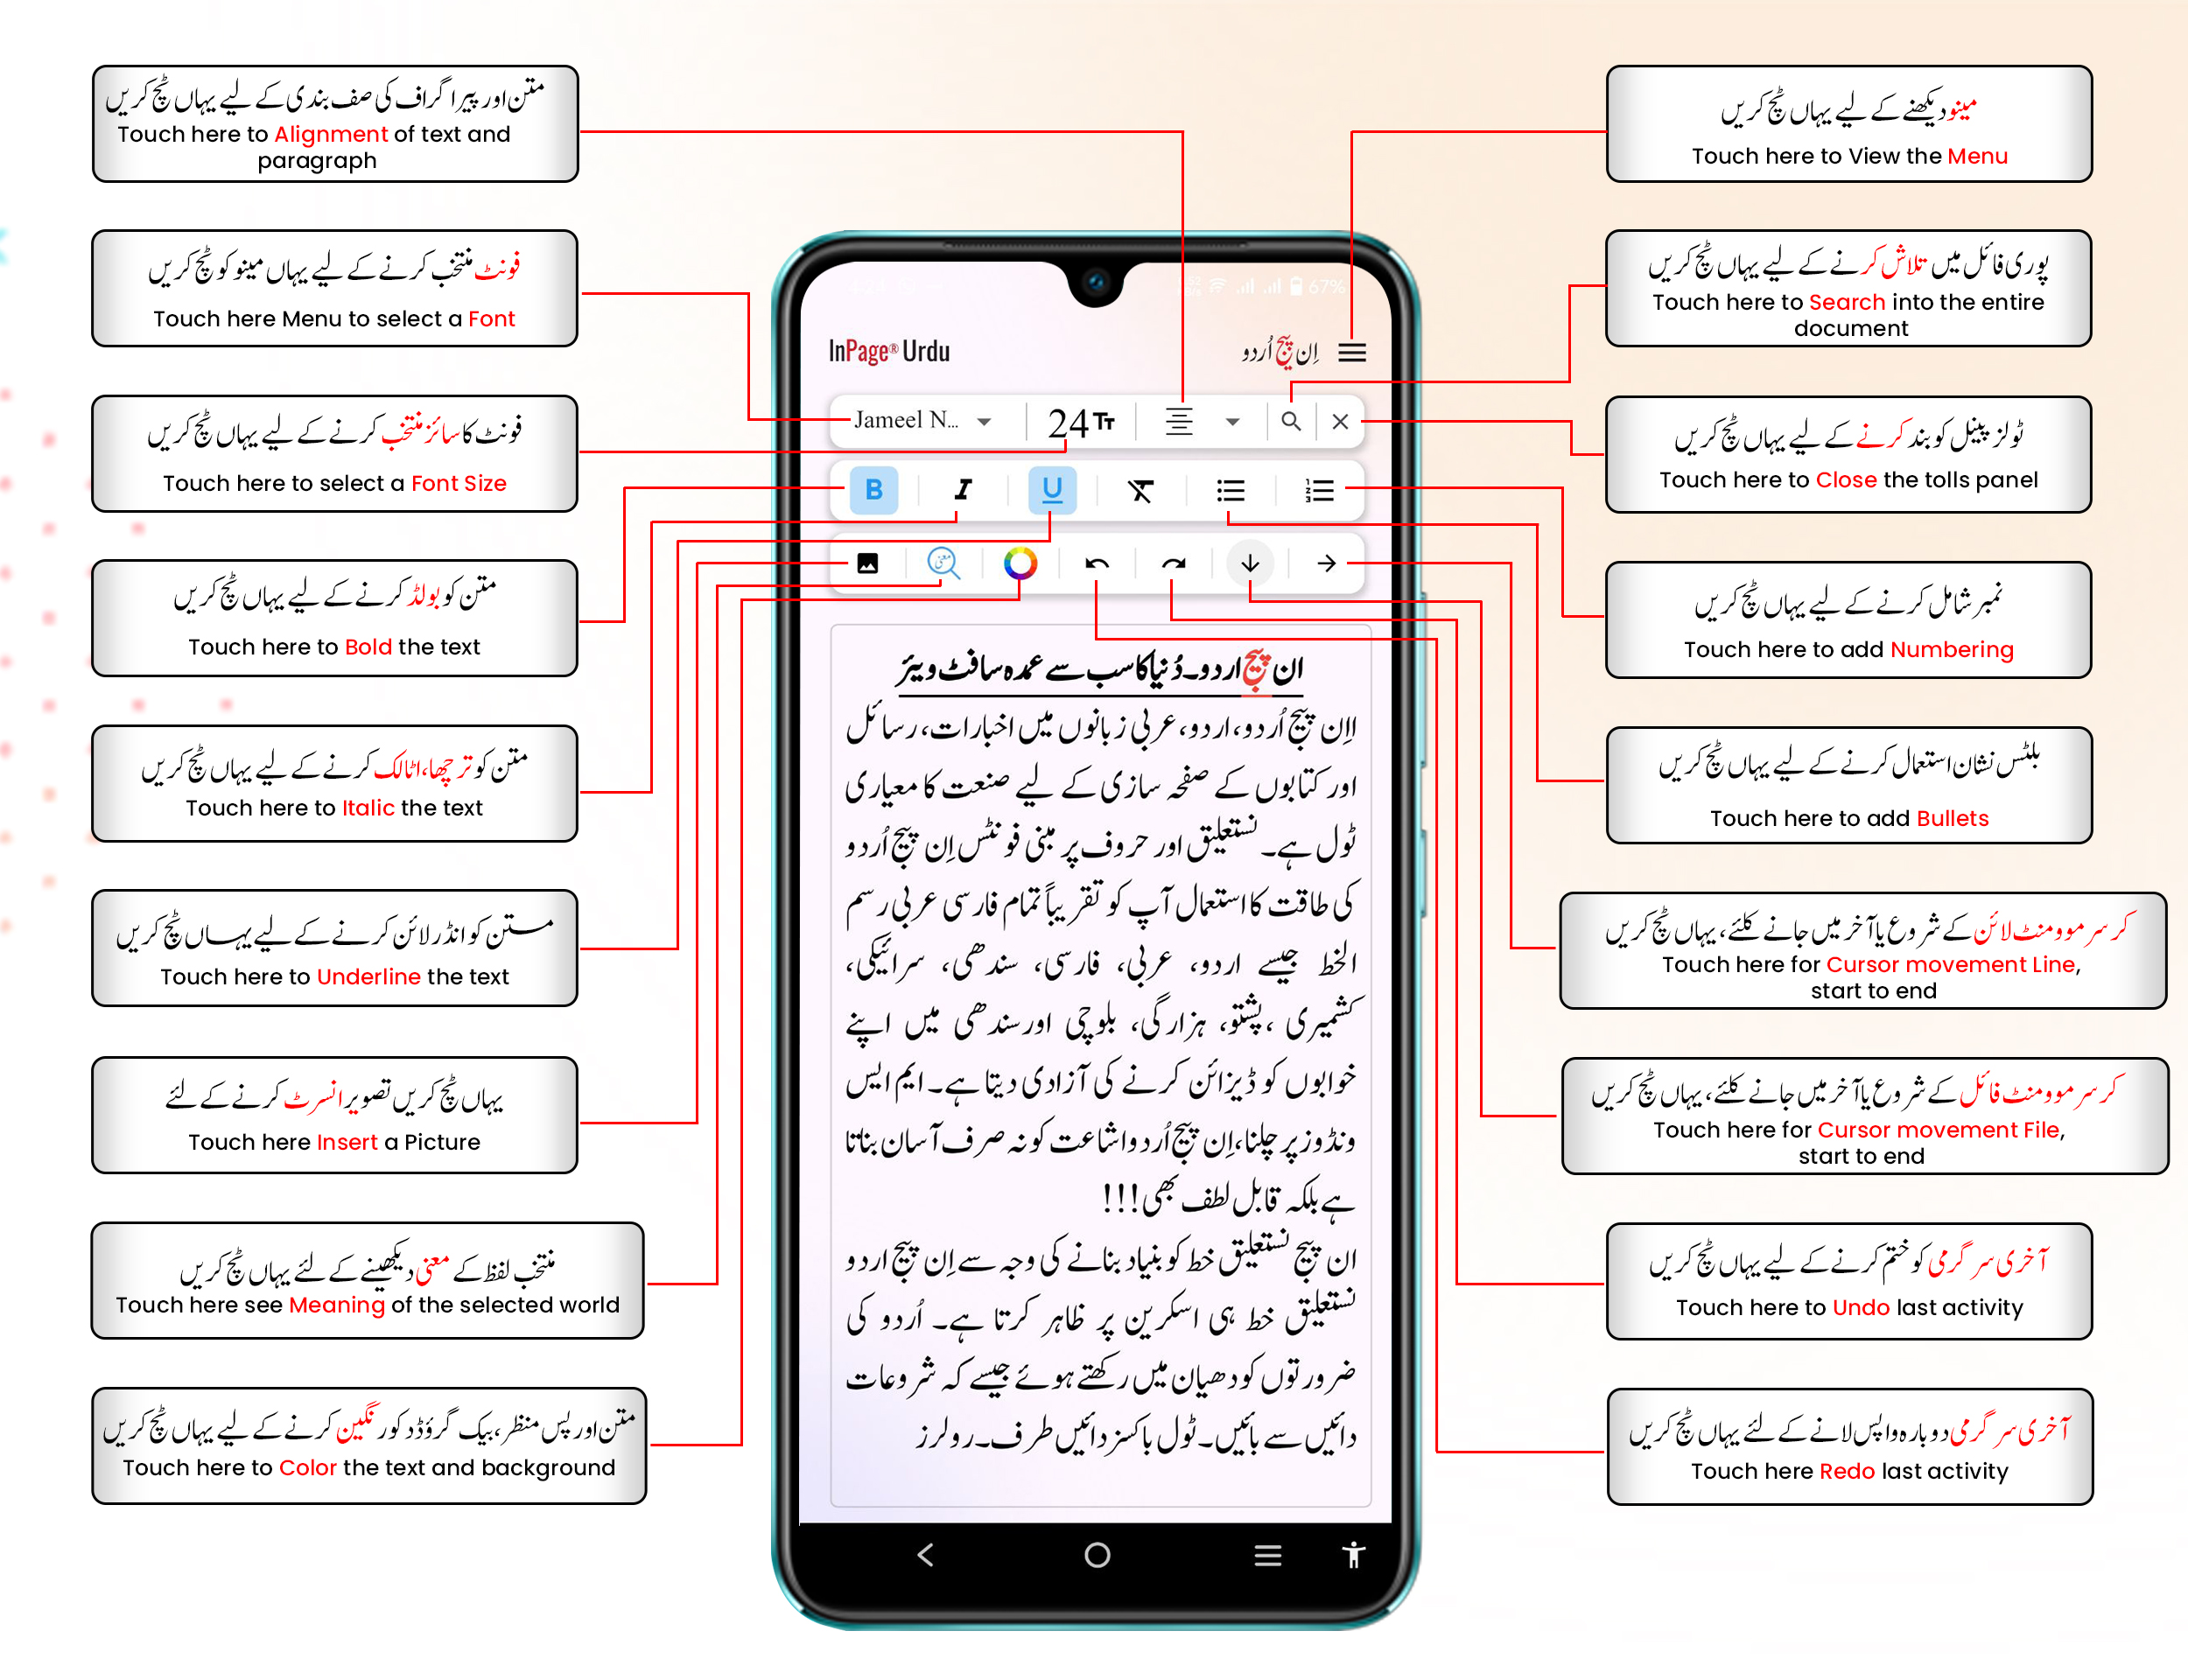 متن اور پیرا گراف کی صف بندی کے لیے یہاں ٹچ کریں
Touch here to Alignment of text and
paragraph
فونٹ منتخب کرنے کے لیے یہاں مینو کو ٹچ کریں
Touch here Menu to select a Font
فونٹ کا سائز منتخب کرنے کے لیے یہاں ٹچ کریں
Touch here to select a Font Size
متن کو بولڈ کرنے کے لیے یہاں ٹچ کریں
Touch here to Bold the text
متن کو ترچھا، اٹالک کرنے کے لیے یہاں ٹچ کریں
Touch here to Italic the text
متن کو انڈر لائن کرنے کے لیے یہاں ٹچ کریں
Touch here to Underline the text
یہاں ٹچ کریں تصویر انسرٹ کرنے کے لئے
Touch here Insert a Picture
منتخب لفظ کے معنی دیکھینے کے لئے یہاں ٹچ کریں
Touch here see Meaning of the selected world
متن اور پس منظر، بیک گروُنڈ کو رنگین کرنے کے لیے یہاں ٹچ کریں
Touch here to Color the text and background
67%
InPage® Urdu
اِن پیج اُردو
Jameel N...
24
B I U
معنی
ان پیج اردو۔ دُنیا کا سب سے عمدہ سافٹ ویئر
ااِن پیج اُردو، اردو، عربی زبانوں میں اخبارات، رسائل
اور کتابوں کے صفحہ سازی کے لیے صنعت کا معیاری
ٹول ہے۔ نستعلیق اور حروف پر مبنی فونٹس اِن پیج اُردو
کی طاقت کا استعمال آپ کو تقریباً تمام فارسی عربی رسم
الخط جیسے اردو، عربی، فارسی، سندھی، سرائیکی،
کشمیری ،پشتو، ہزارگی، بلوچی اور سندھی میں اپنے
خوابوں کو ڈیزائن کرنے کی آزادی دیتا ہے۔ ایم ایس
ونڈوز پر چلنا، اِن پیج اُردو اشاعت کو نہ صرف آسان بناتا
ہے بلکہ قابل لطف بھی!!!
ان پیج نستعلیق خط کو بنیاد بنانے کی وجہ سے اِن پیج اردو
نستعلیق خط ہی اسکرین پر ظاہر کرتا ہے۔ اُردو کی
ضرورتوں کو دھیان میں رکھتے ہوئے جیسے کہ شروعات
دائیں سے بائیں۔ ٹول باکسز دائیں طرف۔ رولرز
مینو دیکھنے کے لیے یہاں ٹچ کریں
Touch here to View the Menu
پوری فائل میں تلاش کرنے کے لیے یہاں ٹچ کریں
Touch here to Search into the entire
document
ٹولز پینل کو بند کرنے کے لیے یہاں ٹچ کریں
Touch here to Close the tolls panel
نمبر شامل کرنے کے لیے یہاں ٹچ کریں
Touch here to add Numbering
بلٹس نشان استعمال کرنے کے لیے یہاں ٹچ کریں
Touch here to add Bullets
کرسر موومنٹ لائن کے شروع یا آخر میں جانے کلئے، یہاں ٹچ کریں
Touch here for Cursor movement Line,
start to end
کرسر موومنٹ فائل کے شروع یا آخر میں جانے کلئے، یہاں ٹچ کریں
Touch here for Cursor movement File,
start to end
آخری سرگرمی کو ختم کرنے کے لیے یہاں ٹچ کریں
Touch here to Undo last activity
آخری سرگرمی دوبارہ واپس لانے کے لئے یہاں ٹچ کریں
Touch here Redo last activity